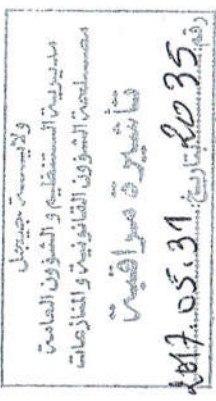 ولايــة جيجل
مديرية التنظيم و الشؤون العامة
مصلحة الشؤون القانونية و المنازعات
تأشيرة مراقبة
رقم: 2035 بتاريخ: 2017.05.31